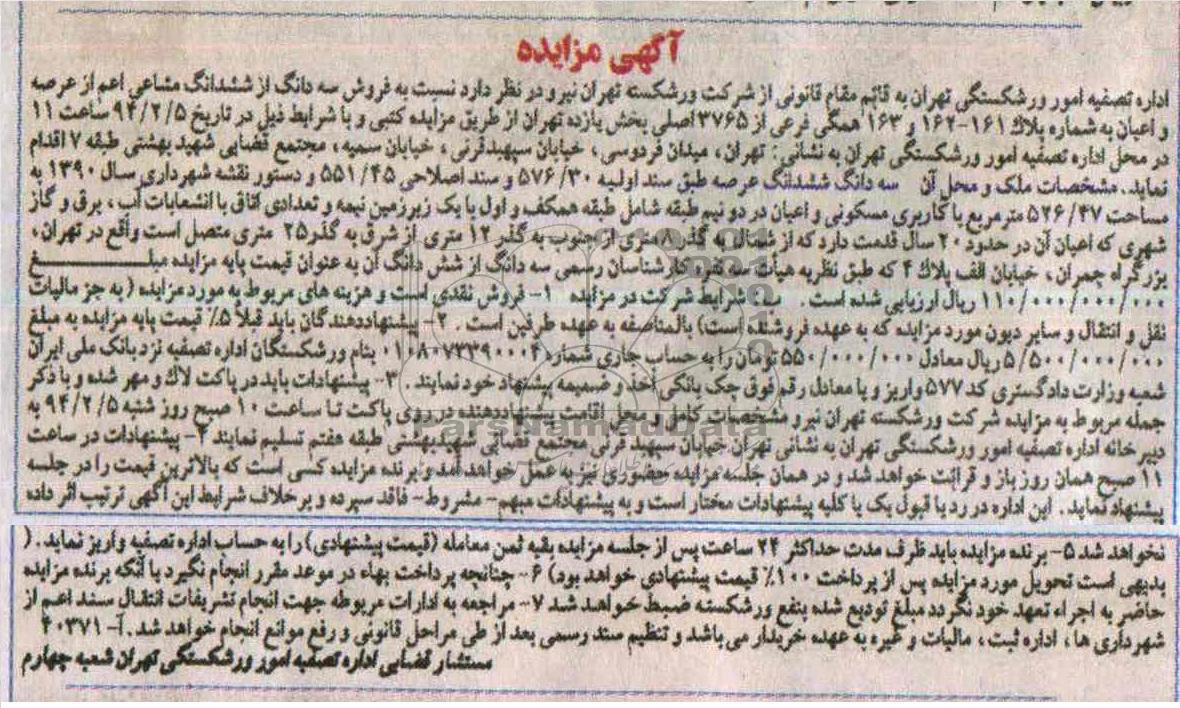 آگهی مزایده
اداره تصفیه امور ورشکستگی تهران به قائم مقام قانونی از شرکت ورشکسته تهران نیرو در نظر دارد نسبت به فروش سه دانگ از ششدانگ مشاعی اعم از عرصه
و اعیان به شماره پلاک ۱۶۱-۱۶۲ و ۱۶۳ همگی فرعی از ۳۷۶۵ اصلی بخش یازده تهران از طریق مزایده کتبی و با شرایط ذیل در تاریخ ۹۴/۲/۵ ساعت ۱۱
در محل اداره تصفیه امور ورشکستگی تهران به نشانی: تهران، میدان فردوسی، خیابان سپهبدقرنی، خیابان سمیه، مجتمع قضایی شهید بهشتی طبقه ۷ اقدام
نماید. مشخصات ملک و محل آن سه دانگ ششدانگ عرصه طبق سند اولیه ۵۷۶/۳۰ و سند اصلاحی ۵۵۱/۴۵ و دستور نقشه شهرداری سال ۱۳۹۰ به
مساحت ۵۲۶/۴۷ مترمربع با کاربری مسکونی و اعیان در دو نیم طبقه شامل طبقه همکف و اول با یک زیرزمین نیمه و تعدادی اتاق با انشعابات آب، برق و گاز
شهری که اعیان آن در حدود ۲۰ سال قدمت دارد که از شمال به گذر ۸ متری از جنوب به گذر ۱۲ متری از شرق به گذر ۲۵ متری متصل است واقع در تهران،
بزرگراه چمران، خیابان الف پلاک ۴ که طبق نظریه هیأت سه نفره کارشناسان رسمی سه دانگ از شش دانگ آن به عنوان قیمت پایه مزایده مبلغ
۱۱۰/۰۰۰/۰۰۰/۰۰۰ ریال ارزیابی شده است. ب: شرایط شرکت در مزایده ۱- فروش نقدی است و هزینه های مربوط به مورد مزایده (به جز مالیات
نقل و انتقال و سایر دیون مورد مزایده که به عهده فروشنده است) بالمناصفه به عهده طرفین است. ۲- پیشنهاددهندگان باید قبلاً ۵% قیمت پایه مزایده به مبلغ
۵/۵۰۰/۰۰۰/۰۰۰ ریال معادل ۵۵۰/۰۰۰/۰۰۰ تومان را به حساب جاری شماره ۰۱۰۸۰۷۲۳۹۰۰۰۴ بنام ورشکستگان اداره تصفیه نزد بانک ملی ایران
شعبه وزارت دادگستری کد ۵۷۷ واریز و یا معادل رقم فوق چک بانکی اخذ و ضمیمه پیشنهاد خود نمایند. ۳- پیشنهادات باید در پاکت لاک و مهر شده و با ذکر
جمله مربوط به مزایده شرکت ورشکسته تهران نیرو مشخصات کامل و محل اقامت پیشنهاددهنده در روی پاکت تا ساعت ۱۰ صبح روز شنبه ۹۴/۲/۵ به
دبیرخانه اداره تصفیه امور ورشکستگی تهران به نشانی تهران خیابان سپهبد قرنی مجتمع قضائی شهیدبهشتی طبقه هفتم تسلیم نمایند ۴- پیشنهادات در ساعت
۱۱ صبح همان روز باز و قرائت خواهد شد و در همان جلسه مزایده حضوری نیز به عمل خواهد آمد و برنده مزایده کسی است که بالاترین قیمت را در جلسه
پیشنهاد نماید. این اداره در رد یا قبول یک یا کلیه پیشنهادات مختار است و به پیشنهادات مبهم- مشروط- فاقد سپرده و برخلاف شرایط این آگهی ترتیب اثر داده
نخواهد شد ۵- برنده مزایده باید ظرف مدت حداکثر ۲۴ ساعت پس از جلسه مزایده بقیه ثمن معامله (قیمت پیشنهادی) را به حساب اداره تصفیه واریز نماید. (
بدیهی است تحویل مورد مزایده پس از پرداخت ۱۰۰% قیمت پیشنهادی خواهد بود) ۶- چنانچه پرداخت بهاء در موعد مقرر انجام نگیرد یا آنکه برنده مزایده
حاضر به اجراء تعهد خود نگردد مبلغ تودیع شده بنفع ورشکسته ضبط خواهد شد ۷- مراجعه به ادارات مربوطه جهت انجام تشریفات انتقال سند اعم از
شهرداری ها، اداره ثبت، مالیات و غیره به عهده خریدار می باشد و تنظیم سند رسمی بعد از طی مراحل قانونی و رفع موانع انجام خواهد شد. آ- ۴۰۳۷۱
مستشار قضایی اداره تصفیه امور ورشکستگی تهران شعبه چهارم
ParsNamadData